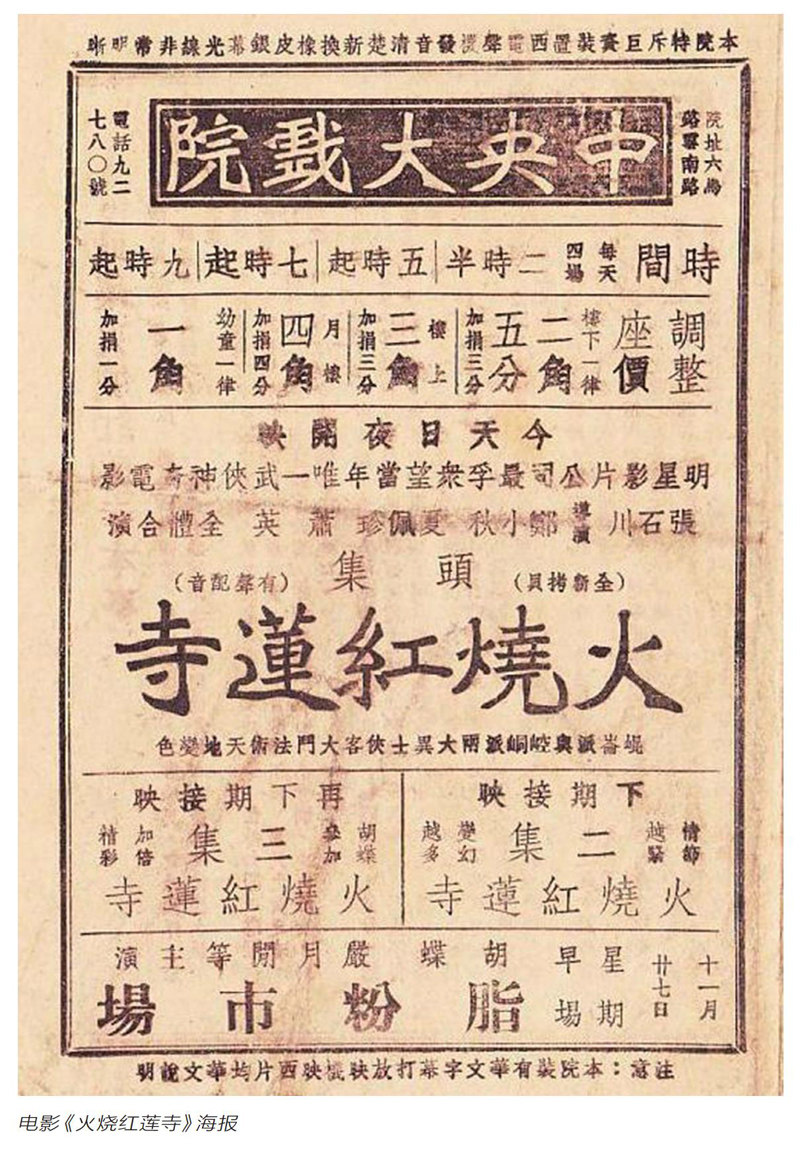 本院特斥巨資裝置西電聲機發音清楚新換橡皮銀幕光線非常明晰
院址六馬路雲南路
中央大戲院
電話九二七八〇號
時間 每天四場 二時半 五時起 七時起 九時起
調整座價 樓下一律二角五分加捐三分 樓上三角加捐三分 月樓四角加捐四分 幼童一律一角加捐一分
今天日夜開映
明星影片公司最孚衆望當年唯一武俠神奇電影
張石川導演 鄭小秋 夏佩珍 蕭英 全體合演
(全新拷貝) 頭集 (有聲配音)
火燒紅蓮寺
崐崙派與崆峒派兩大異士俠客大鬥法術天地變色
下期接映
情節越緊 二集 變幻越多
火燒紅蓮寺
再下期接映
胡蝶參加 三集 加倍精彩
火燒紅蓮寺
十一月廿七日 星期早場
胡蝶 嚴月閒等主演
脂粉市場
注意：本院裝有華文字幕打放映機映西片均華文說明
电影《火烧红莲寺》海报